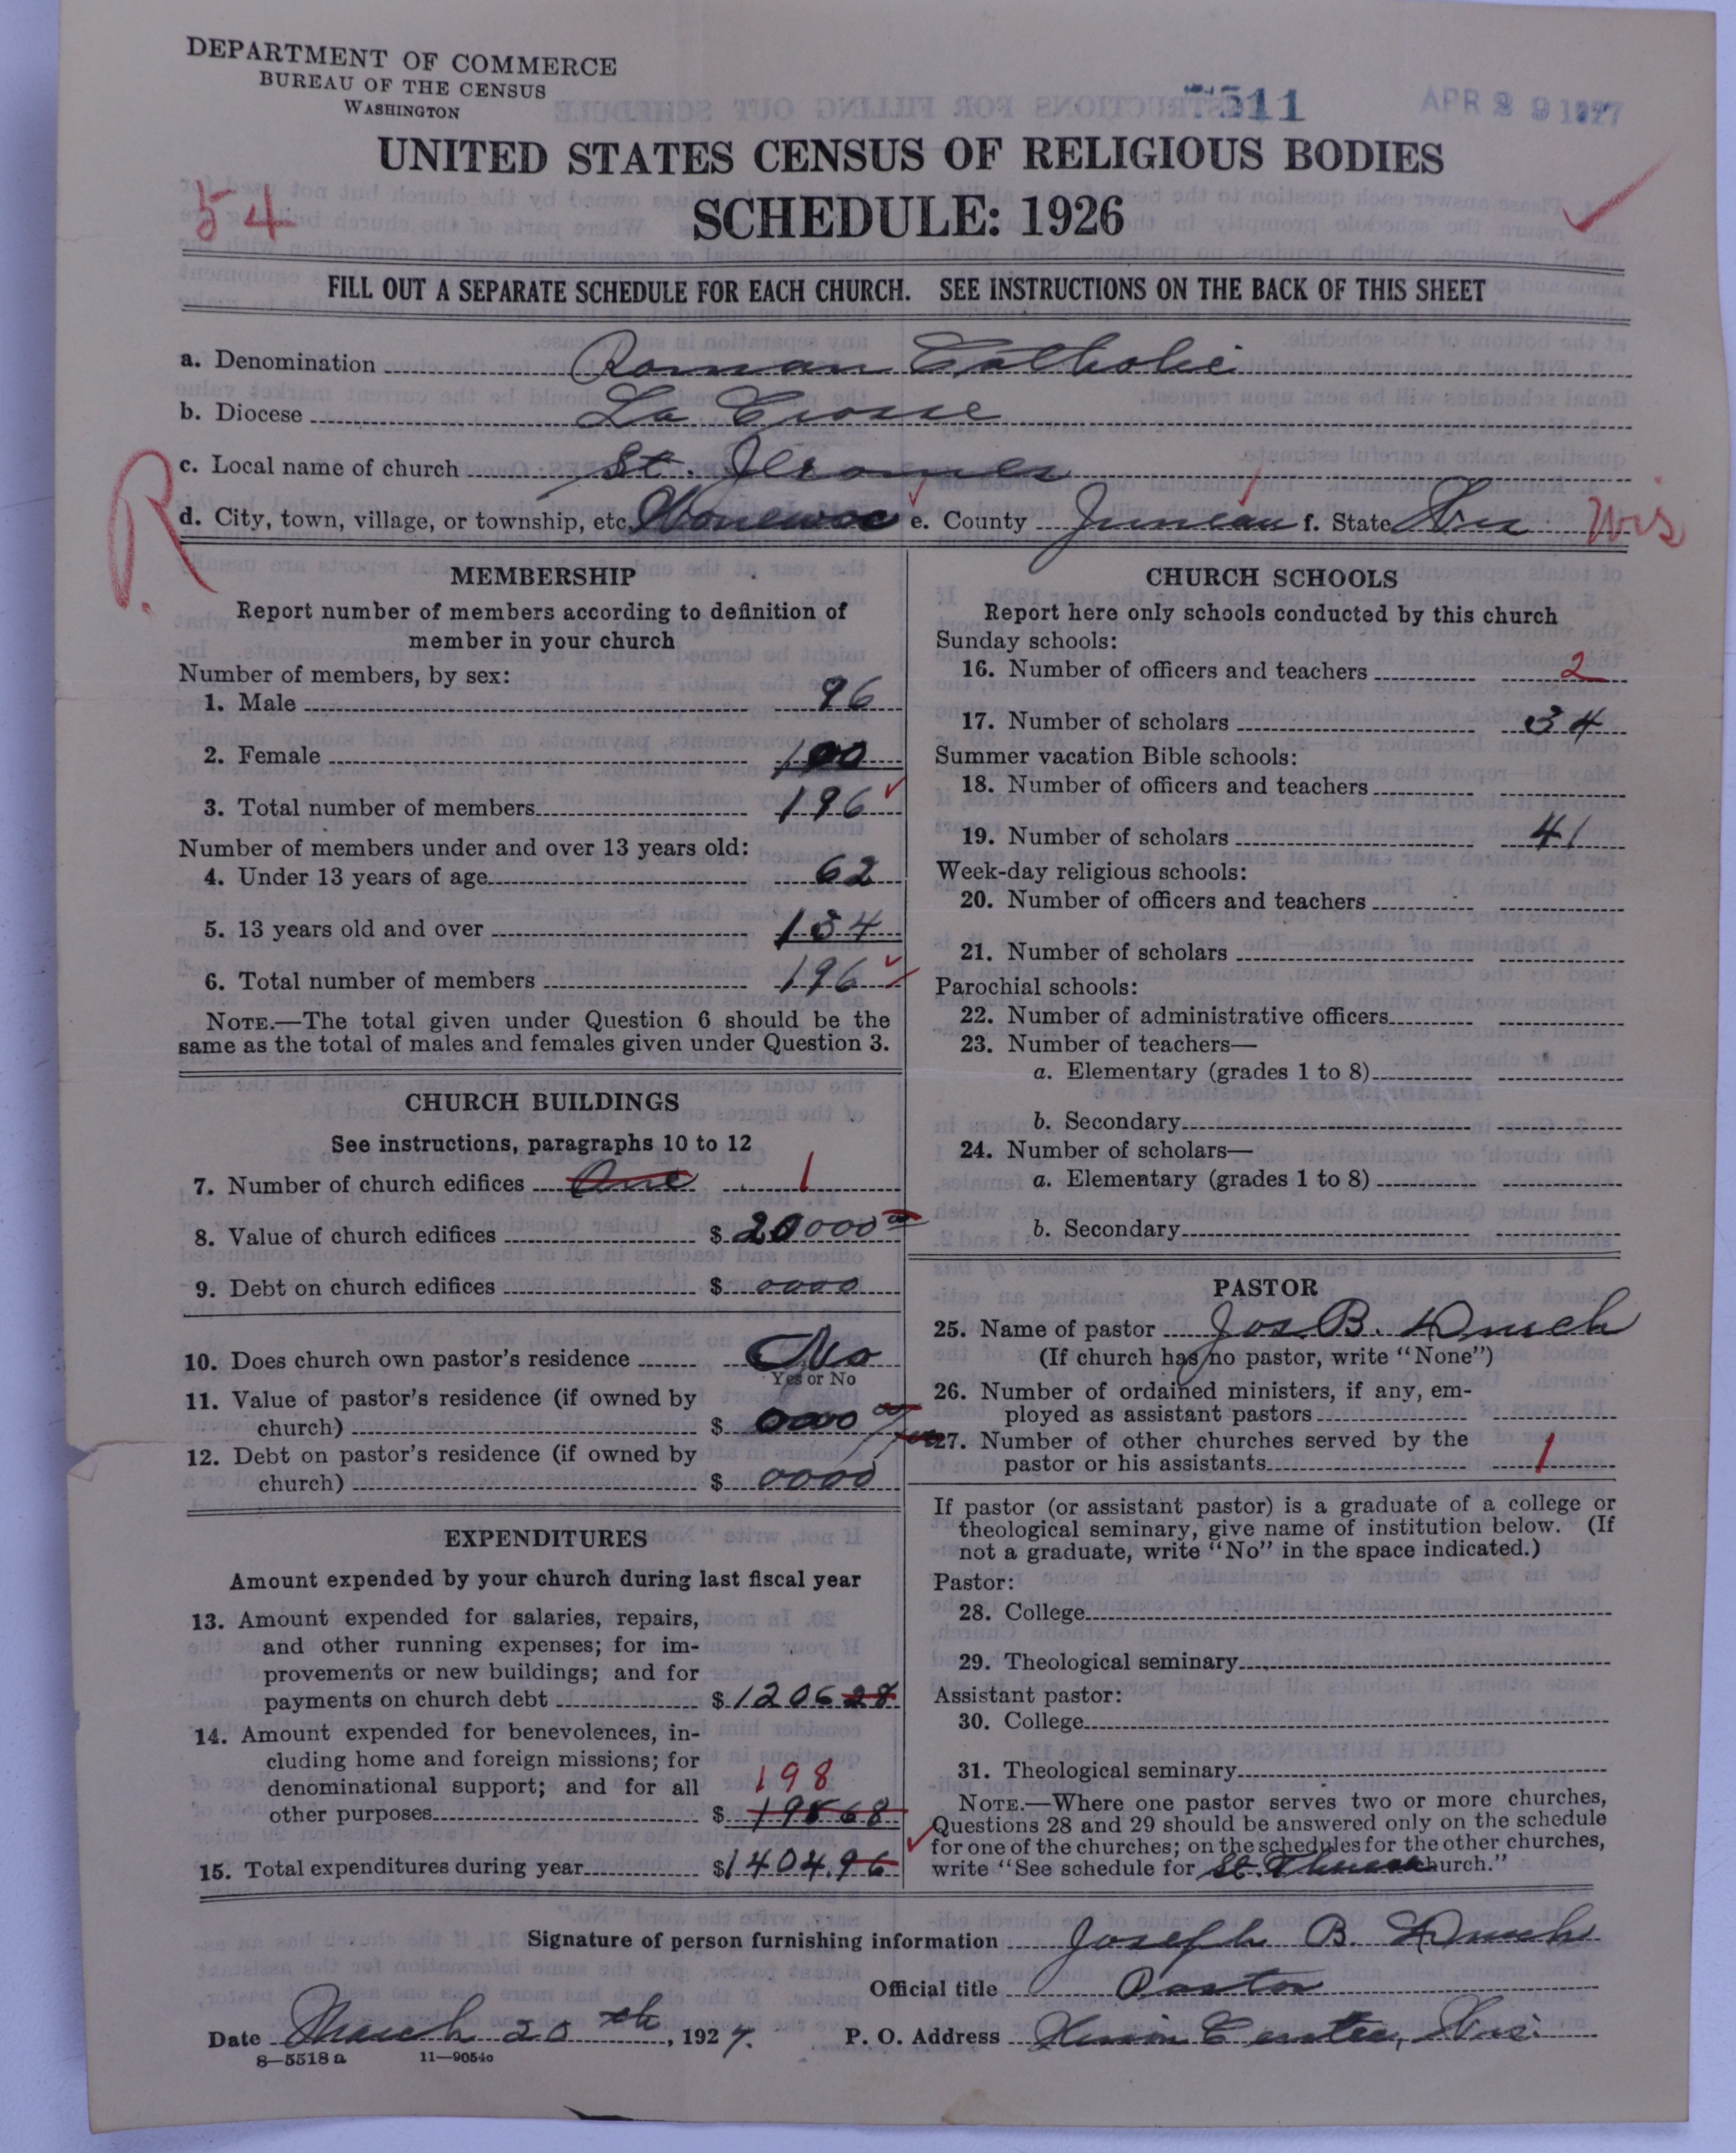 DEPARTMENT OF COMMERCE
BUREAU OF THE CENSUS
WASHINGTON
511
APR 29 1927
UNITED STATES CENSUS OF RELIGIOUS BODIES
54
SCHEDULE: 1926
FILL OUT A SEPARATE SCHEDULE FOR EACH CHURCH. SEE INSTRUCTIONS ON THE BACK OF THIS SHEET
a. Denomination Roman Catholic
b. Diocese La Crosse
c. Local name of church St. Jeromes
R
d. City, town, village, or township, etc. Wonewoc e. County Juneau f. State Wis Wis
MEMBERSHIP
Report number of members according to definition of
member in your church
Number of members, by sex:
1. Male 96
2. Female 100
3. Total number of members 196
Number of members under and over 13 years old:
4. Under 13 years of age 62
5. 13 years old and over 134
6. Total number of members 196
NOTE.—The total given under Question 6 should be the
same as the total of males and females given under Question 3.
CHURCH BUILDINGS
See instructions, paragraphs 10 to 12
7. Number of church edifices One 1
8. Value of church edifices $ 20000 00
9. Debt on church edifices $ 0000
10. Does church own pastor's residence No
Yes or No
11. Value of pastor's residence (if owned by
church) $ 000 00
12. Debt on pastor's residence (if owned by
church) $ 0000
EXPENDITURES
Amount expended by your church during last fiscal year
13. Amount expended for salaries, repairs,
and other running expenses; for im-
provements or new buildings; and for
payments on church debt $ 1206 28
14. Amount expended for benevolences, in-
cluding home and foreign missions; for
denominational support; and for all 198
other purposes $ 198 68
15. Total expenditures during year $ 1404.96
CHURCH SCHOOLS
Report here only schools conducted by this church
Sunday schools:
16. Number of officers and teachers 2
17. Number of scholars 34
Summer vacation Bible schools:
18. Number of officers and teachers
19. Number of scholars 41
Week-day religious schools:
20. Number of officers and teachers
21. Number of scholars
Parochial schools:
22. Number of administrative officers
23. Number of teachers—
a. Elementary (grades 1 to 8)
b. Secondary
24. Number of scholars—
a. Elementary (grades 1 to 8)
b. Secondary
PASTOR
25. Name of pastor Jos B.
(If church has no pastor, write "None")
26. Number of ordained ministers, if any, em-
ployed as assistant pastors
27. Number of other churches served by the
pastor or his assistants 1
If pastor (or assistant pastor) is a graduate of a college or
theological seminary, give name of institution below. (If
not a graduate, write "No" in the space indicated.)
Pastor:
28. College
29. Theological seminary
Assistant pastor:
30. College
31. Theological seminary
NOTE.—Where one pastor serves two or more churches,
Questions 28 and 29 should be answered only on the schedule
for one of the churches; on the schedules for the other churches,
write "See schedule for St. church."
Signature of person furnishing information Joseph B.
Official title Pastor
Date March 20th, 1927. P. O. Address Center, Wis.
8—5518 a 11—9054o